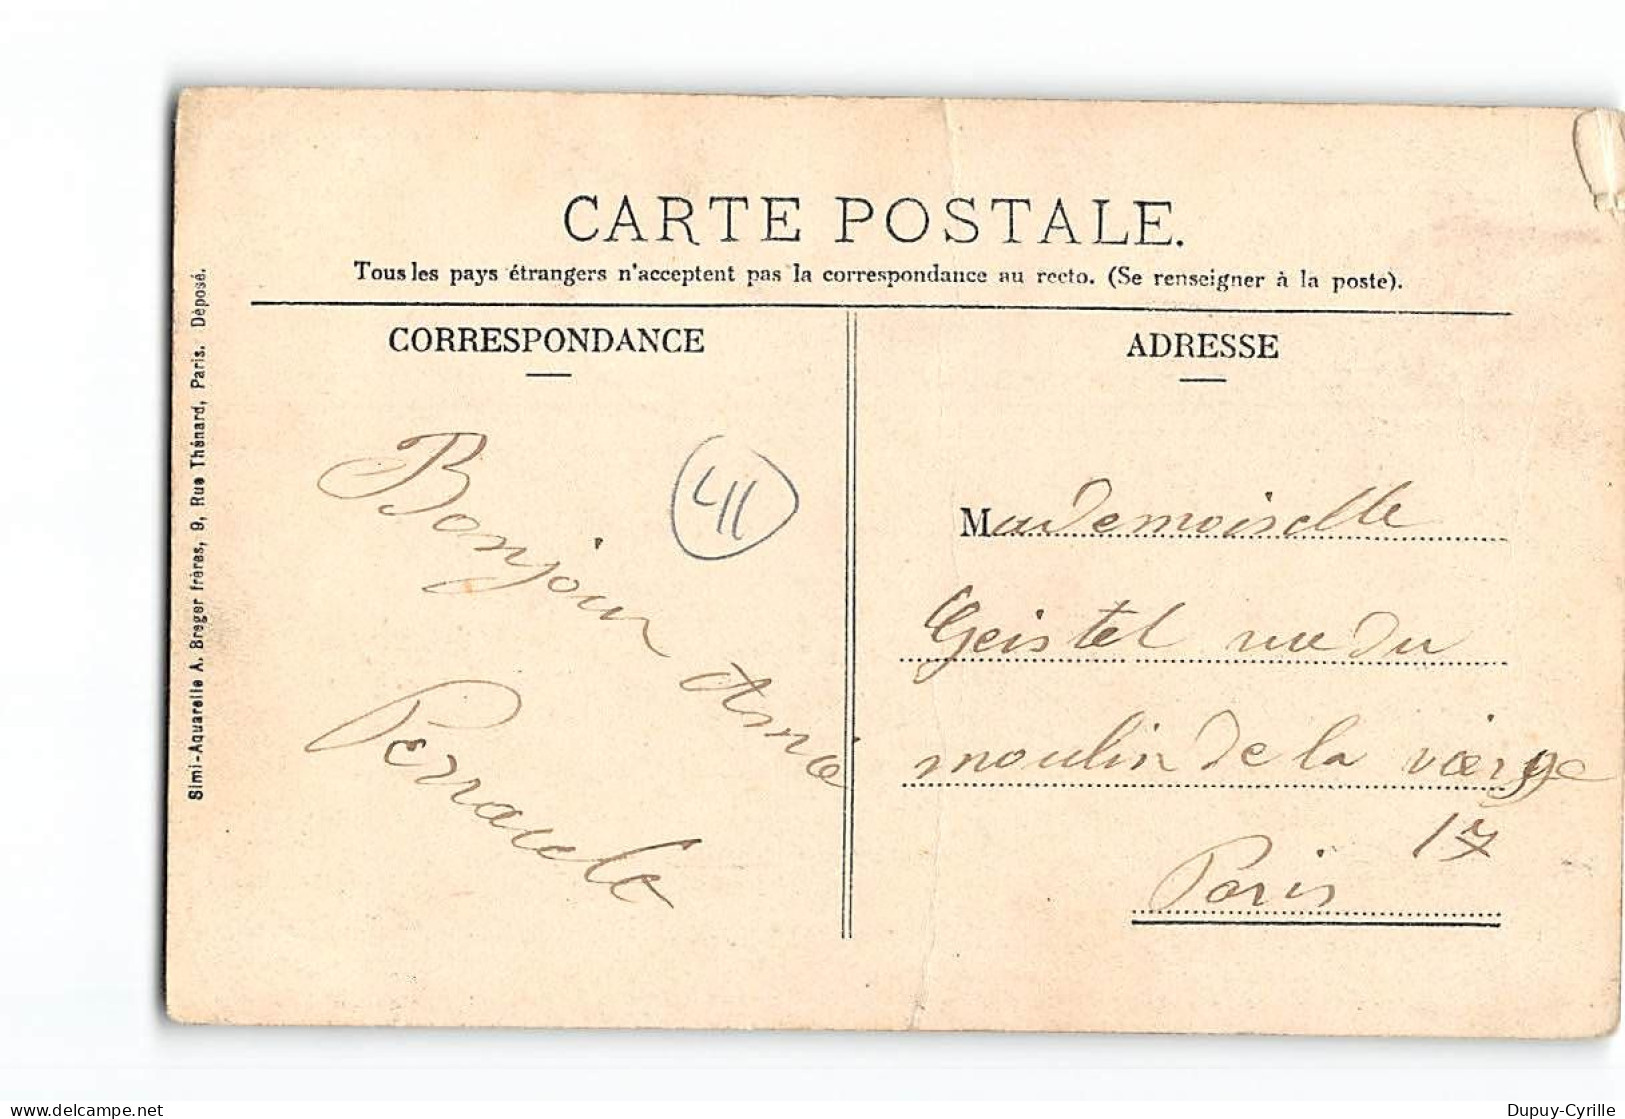 CARTE POSTALE.
Tous les pays étrangers n'acceptent pas la correspondance au recto. (Se renseigner à la poste).
CORRESPONDANCE
Bonjour Amé
Perrault
41
ADRESSE
Mademoiselle
Geistel rue du
moulin de la vierge
17
Paris
Simi-Aquarelle A. Breger frères, 9, Rue Thénard, Paris. Déposé.
Dupuy-Cyrille